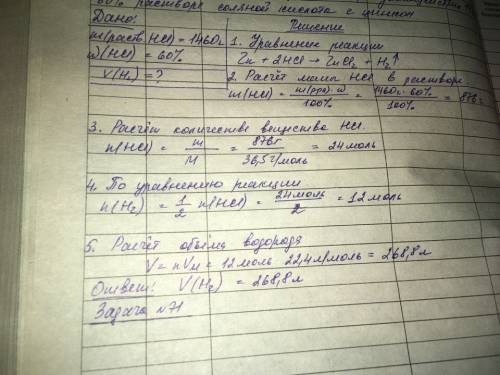 60% раствора соляной кислоты с цинком
Дано:
Решение
m(раств. HCl) = 1460г
1. Уравнение реакции
ω(HCl) = 60%
Zn + 2HCl → ZnCl₂ + H₂↑
V(H₂) = ?
2. Расчёт массы HCl в растворе
m(HCl) = m(р-ра)·ω / 100% = 1460г·60% / 100% = 876г
3. Расчёт количества вещества HCl.
n(HCl) = m / M = 876г / 36,5г/моль = 24моль
4. По уравнению реакции
n(H₂) = 1/2 n(HCl) = 24моль / 2 = 12моль
5. Расчёт объёма водорода
V = nVм = 12моль · 22,4л/моль = 268,8л
Ответ: V(H₂) = 268,8л
Задача №71